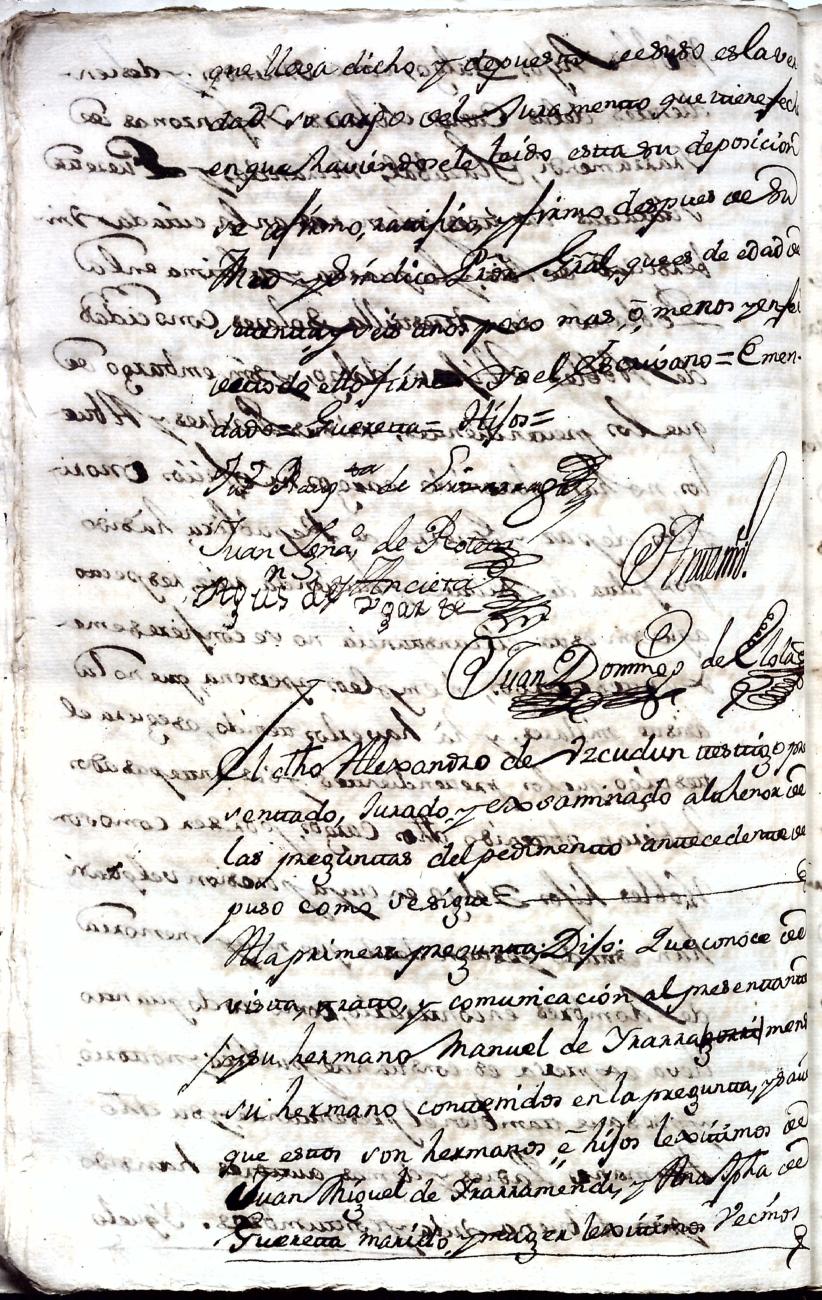 que lleva dicho y depuesto de suso es la ver
dad so cargo del Juramento que tiene fech
en que haviendosele leido esta su deposicion
se afirmo, ratificó, y firmó despues de Su
Mrd y Sindico Pror Gral, que es de edad de
setenta y seis años poco mas, ó menos y en fee
de todo ello firmé Yo el Escrivano = Emen-
dado = Guereta = Hijos =
Jn Bapta de
Juan de Roteta
Agusn de Ancieta
Antemi
Juan Domingo de
El dho Alexandro de Yzcudun testigo pre
sentado, Jurado, y exsaminado al thenor de
las preguntas del pedimento antecedente de
puso como se sigue
A la primera pregunta: Dijo: Que conoce de
vista, trato, y comunicación al presentante
y su hermano Manuel de Yrarra mendi
su hermano contenidos en la pregunta, y save
que estos son hermanos é hijos lexitimos de
Juan Miguel de Yrarramendi, y Ana Jpha de
Guereta marido, y muger lexitimos Vecinos